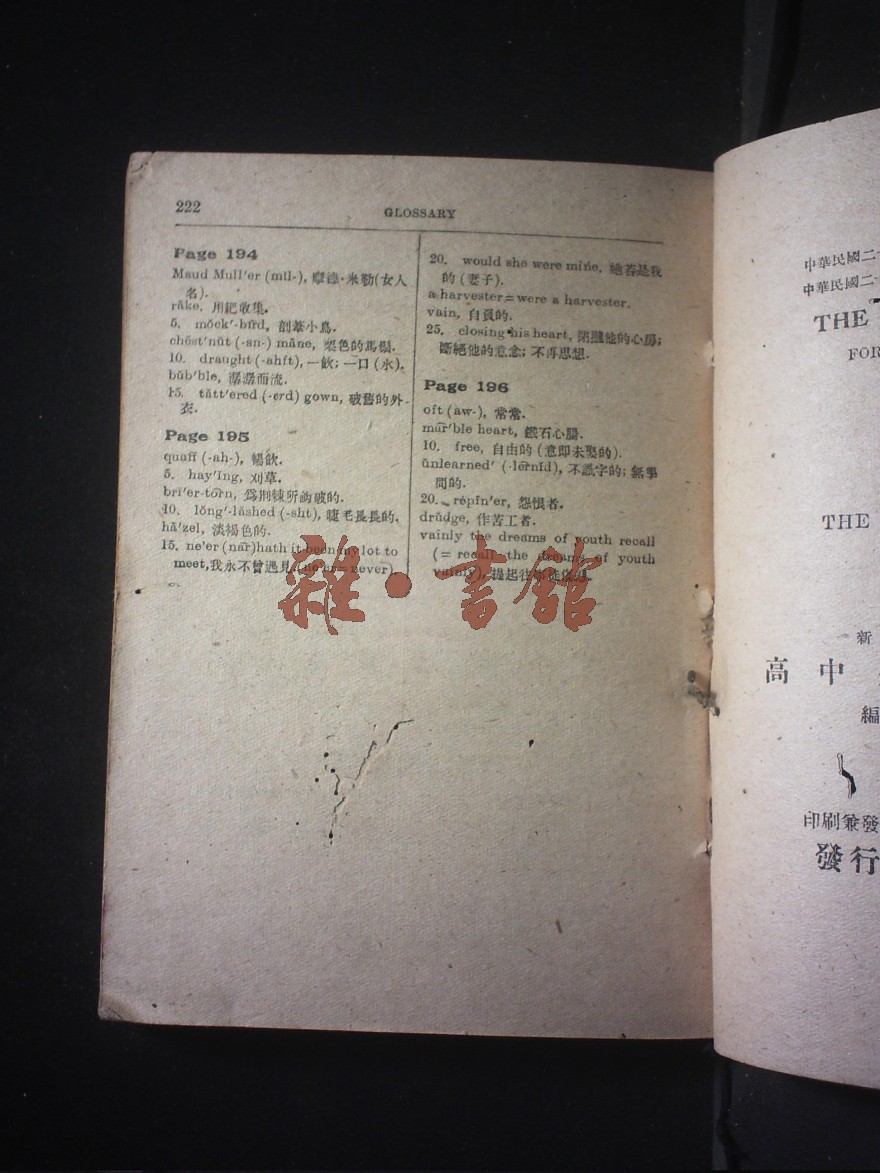 222
GLOSSARY
Page 194
Maud Mull'er (mŭl-), 摩德·米勒(女人
名).
rāke, 用耙收集.
5. mŏck'-bĭrd, 剖葦小鳥.
chĕst'nŭt (-sn-) māne, 栗色的馬鬃.
10. draught (-ahft), 一飲; 一口 (水).
bŭb'ble, 潺潺而流.
15. tătt'ered (-erd) gown, 破舊的外
衣.
Page 195
quaff (-ah-), 暢飲.
5. hay'ĭng, 刈草.
brī'er-tōrn, 爲荊棘所鈎破的.
10. lŏng'-lăshed (-sht), 睫毛長長的.
hā'zel, 淡褐色的.
15. ne'er (nār) hath it been my lot to
meet, 我永不曾遇見. (ne'er = never)
20. would she were mine, 她若是我
的 (妻子).
a harvester = were a harvester.
vain, 自負的.
25. closing his heart, 閉攏他的心扇;
斷絕他的意念; 不再思想.
Page 196
oft (aw-), 常常.
mar'ble heart, 鐵石心腸.
10. free, 自由的 (意即未娶的).
ŭnlearned' (-lernĭd), 不識字的; 無學
問的.
20. rĕpīn'er, 怨恨者.
drŭdge, 作苦工者.
vainly the dreams of youth recall
(= recall the dreams of youth
vainly), 提起往
雜·書館
中華民國二
中華民國二
THE
FOR
THE
新
高中
編
印刷兼發
發行